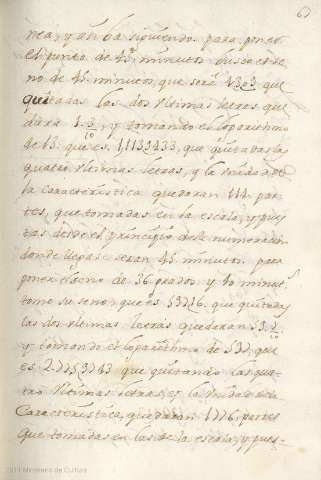 67
nea, y asi ba siguiendo para poner
el punto de 45 minutos busco el se-
no de 45 minutos, que sera 1303 que
quitadas las dos ultimas letras que
dara 13 3/10, y tomando el logarithmo
de 13. que es. 1,1139433, que quitadas las
quatro ultimas letras, y la unidad de
la caracteristica quedaran 114. par-
tes, que tomadas en la escala, y pues-
tas desde el principio de numeracion
donde llegare seran 45 minutos. para
poner el seno de 36 grados y 10 minuts
tome su seno, que es 53716. que quitadas
las dos ultimas letras quedaran 537
y tomando el logarithmo de 537, que
es 2.7753743 que quitando las qua-
tro ultimas letras, es la unidad de la
Caracteristica, quedaran 1776 partes
que tomadas en las de la escala, y pues-
2011 Ministerio de Cultura